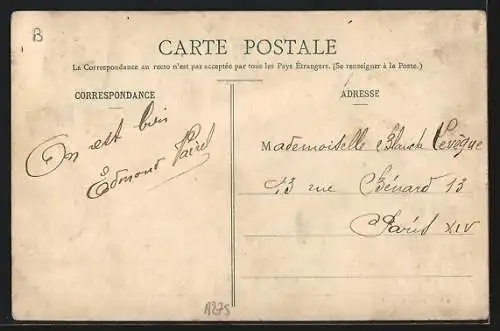 B
CARTE POSTALE
La Correspondance au recto n'est pas acceptée par tous les Pays Étrangers. (Se renseigner à la Poste.)
CORRESPONDANCE
ADRESSE
On est bien
Edmond
Mademoiselle Blanch Levêque
13 rue Bénard 13
Paris XIV